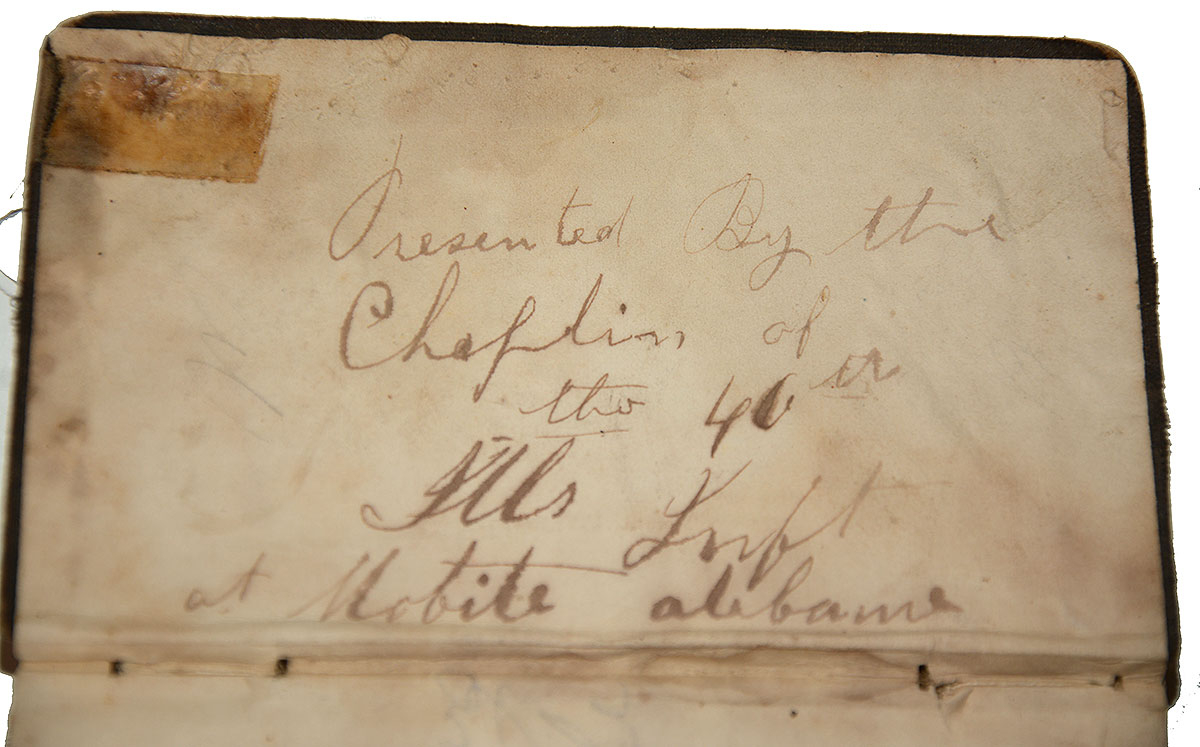 Presented By the
Chaplin of
the 46th
Ills Inft
at Mobile alabama